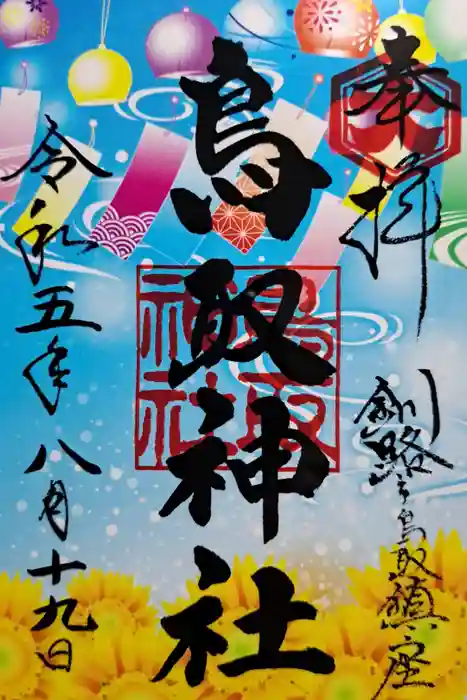 奉拝
釧路之鳥取鎮座
鳥取神社
鳥取神社
令和五年八月十九日